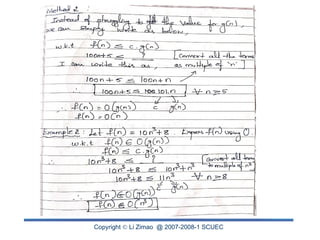 Method 2 :
Instead of struggling to get the value for g(n),
we can simply write as below,
w.k.t f(n) ≤ c.g(n)
100n+5 ≤ ? [convert all the terms
I can write this as, as multiple of 'n']
100n+5 ≤ 100n+n
∴ 100n+5 ≤ 101.n ∀ n≥5
∴ f(n) = O(g(n)) c g(n)
f(n) = O(n)
Example 2 : Let f(n) = 10n³+8. Express f(n) using O.
w.k.t f(n) ∈ O(g(n))
f(n) ≤ c.g(n)
10n³+8 ≤ ? [convert all term
10n³+8 ≤ 10n³+n³ to multiple of n³]
10n³+8 ≤ 11n³ ∀ n≥8
c g(n)
∴ f(n) ∈ O(g(n))
f(n) ∈ O(n³)
Copyright © Li Zimao @ 2007-2008-1 SCUEC